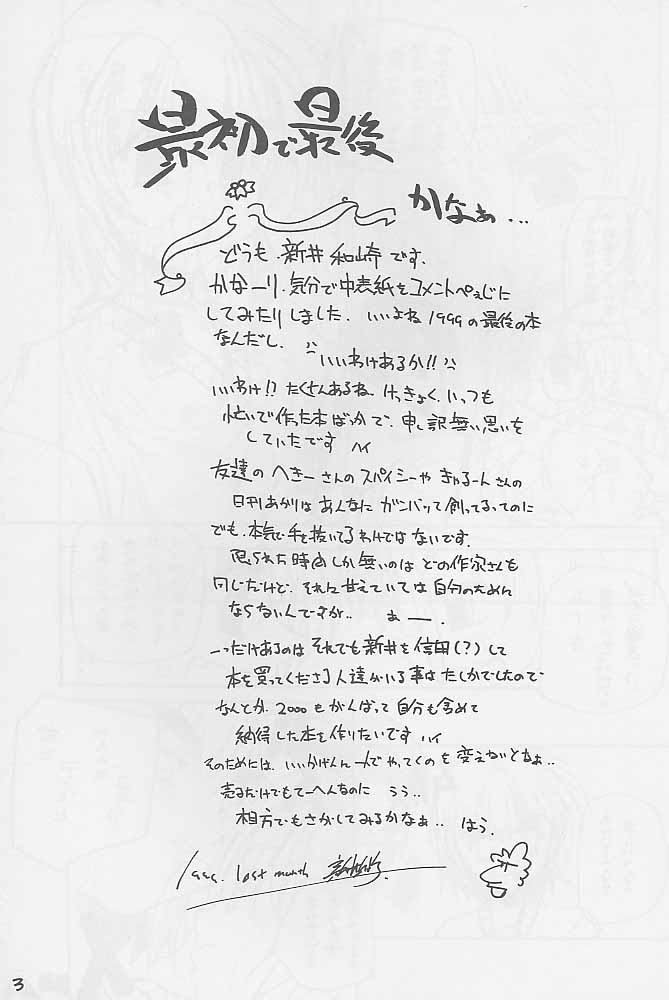 最初で最後
かなぁ...
どうも.新井和崎です.
かなーり.気分で中表紙をコメントぺぇじに
してみたりしました. いいよね1999の最後の本
なんだし.
いいわけあるか!!
いいわけ!? たくさんあるね. けっきょく.いっつも
忙いで作った本ばっかで. 申し訳無い思いを
していたです ハイ
友達の へきーさんのスパイシーや きゃるーんさんの
日刊あかりは あんなに ガンバッて創ってるってのに
でも.本気で手を抜いてるわけではないです.
限られた時間しか無いのは どの作家さんも
同じだけど. それに甘えていては自分のために
ならないんですが.. ぁー.
一つだけあるのは それでも新井を信用(?)して
本を買ってくださる人達がいる事は たしかでしたので
なんとか. 2000もがんばって 自分も含めて
納得した本を作りたいです ハイ
そのためには. いいかげん 一人で やってくのを 変えないとなぁ..
売るだけでもてーへんなのに うぅ..
相方でもさがしてみるかなぁ.. はう.
1999. last month
3